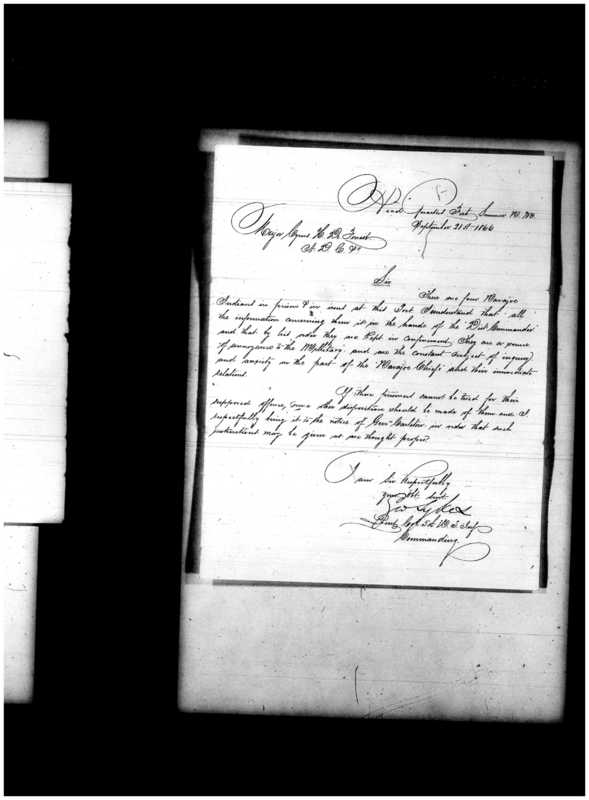 Head quarters Fort Sumner N. M.
September 21st 1866
Major Cyrus H. De Forrest
A. D. C. &c
Sir
There are four Navajoe
Indians in prison & in irons at this Fort I understand that all
the information concerning them is in the hands of the Dist Commander
and that by his order they are Kept in confinement, They are a source
of annoyance to the Military and are the constant subject of inquiry
and anxiety on the part of the Navajoe Chiefs and their immediate
relations.
If these prisoners cannot be tried for their
supposed offence, some disposition should be made of them and I
respectfully bring it to the notice of Gen Carleton in order that such
instructions may be given as are thought proper.
I am Sir Respectfully
your obt. servt.
Geo Sykes
5th U. S. Inf
Commanding